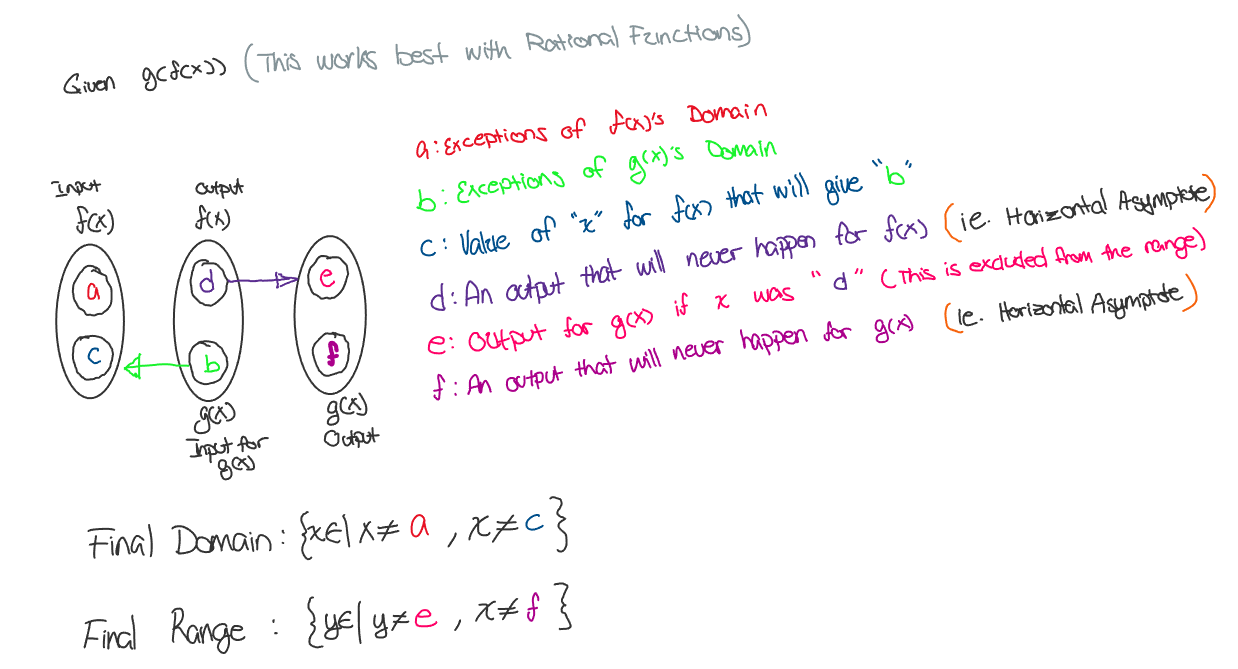 Given g(f(x)) (This works best with Rational Functions)
a: Exceptions of f(x)'s Domain
b: Exceptions of g(x)'s Domain
c: Value of "x" for f(x) that will give "b"
d: An output that will never happen for f(x) (ie. Horizontal Asymptote)
e: Output for g(x) if x was "d" (This is excluded from the range)
f: An output that will never happen for g(x) (ie. Horizontal Asymptote)
Input
f(x)
output
f(x)
a
d
e
c
b
f
g(x)
Input for
g(x)
g(x)
Output
Final Domain: {x∈| x≠ a , x≠c }
Final Range : {y∈| y≠e , x≠f }